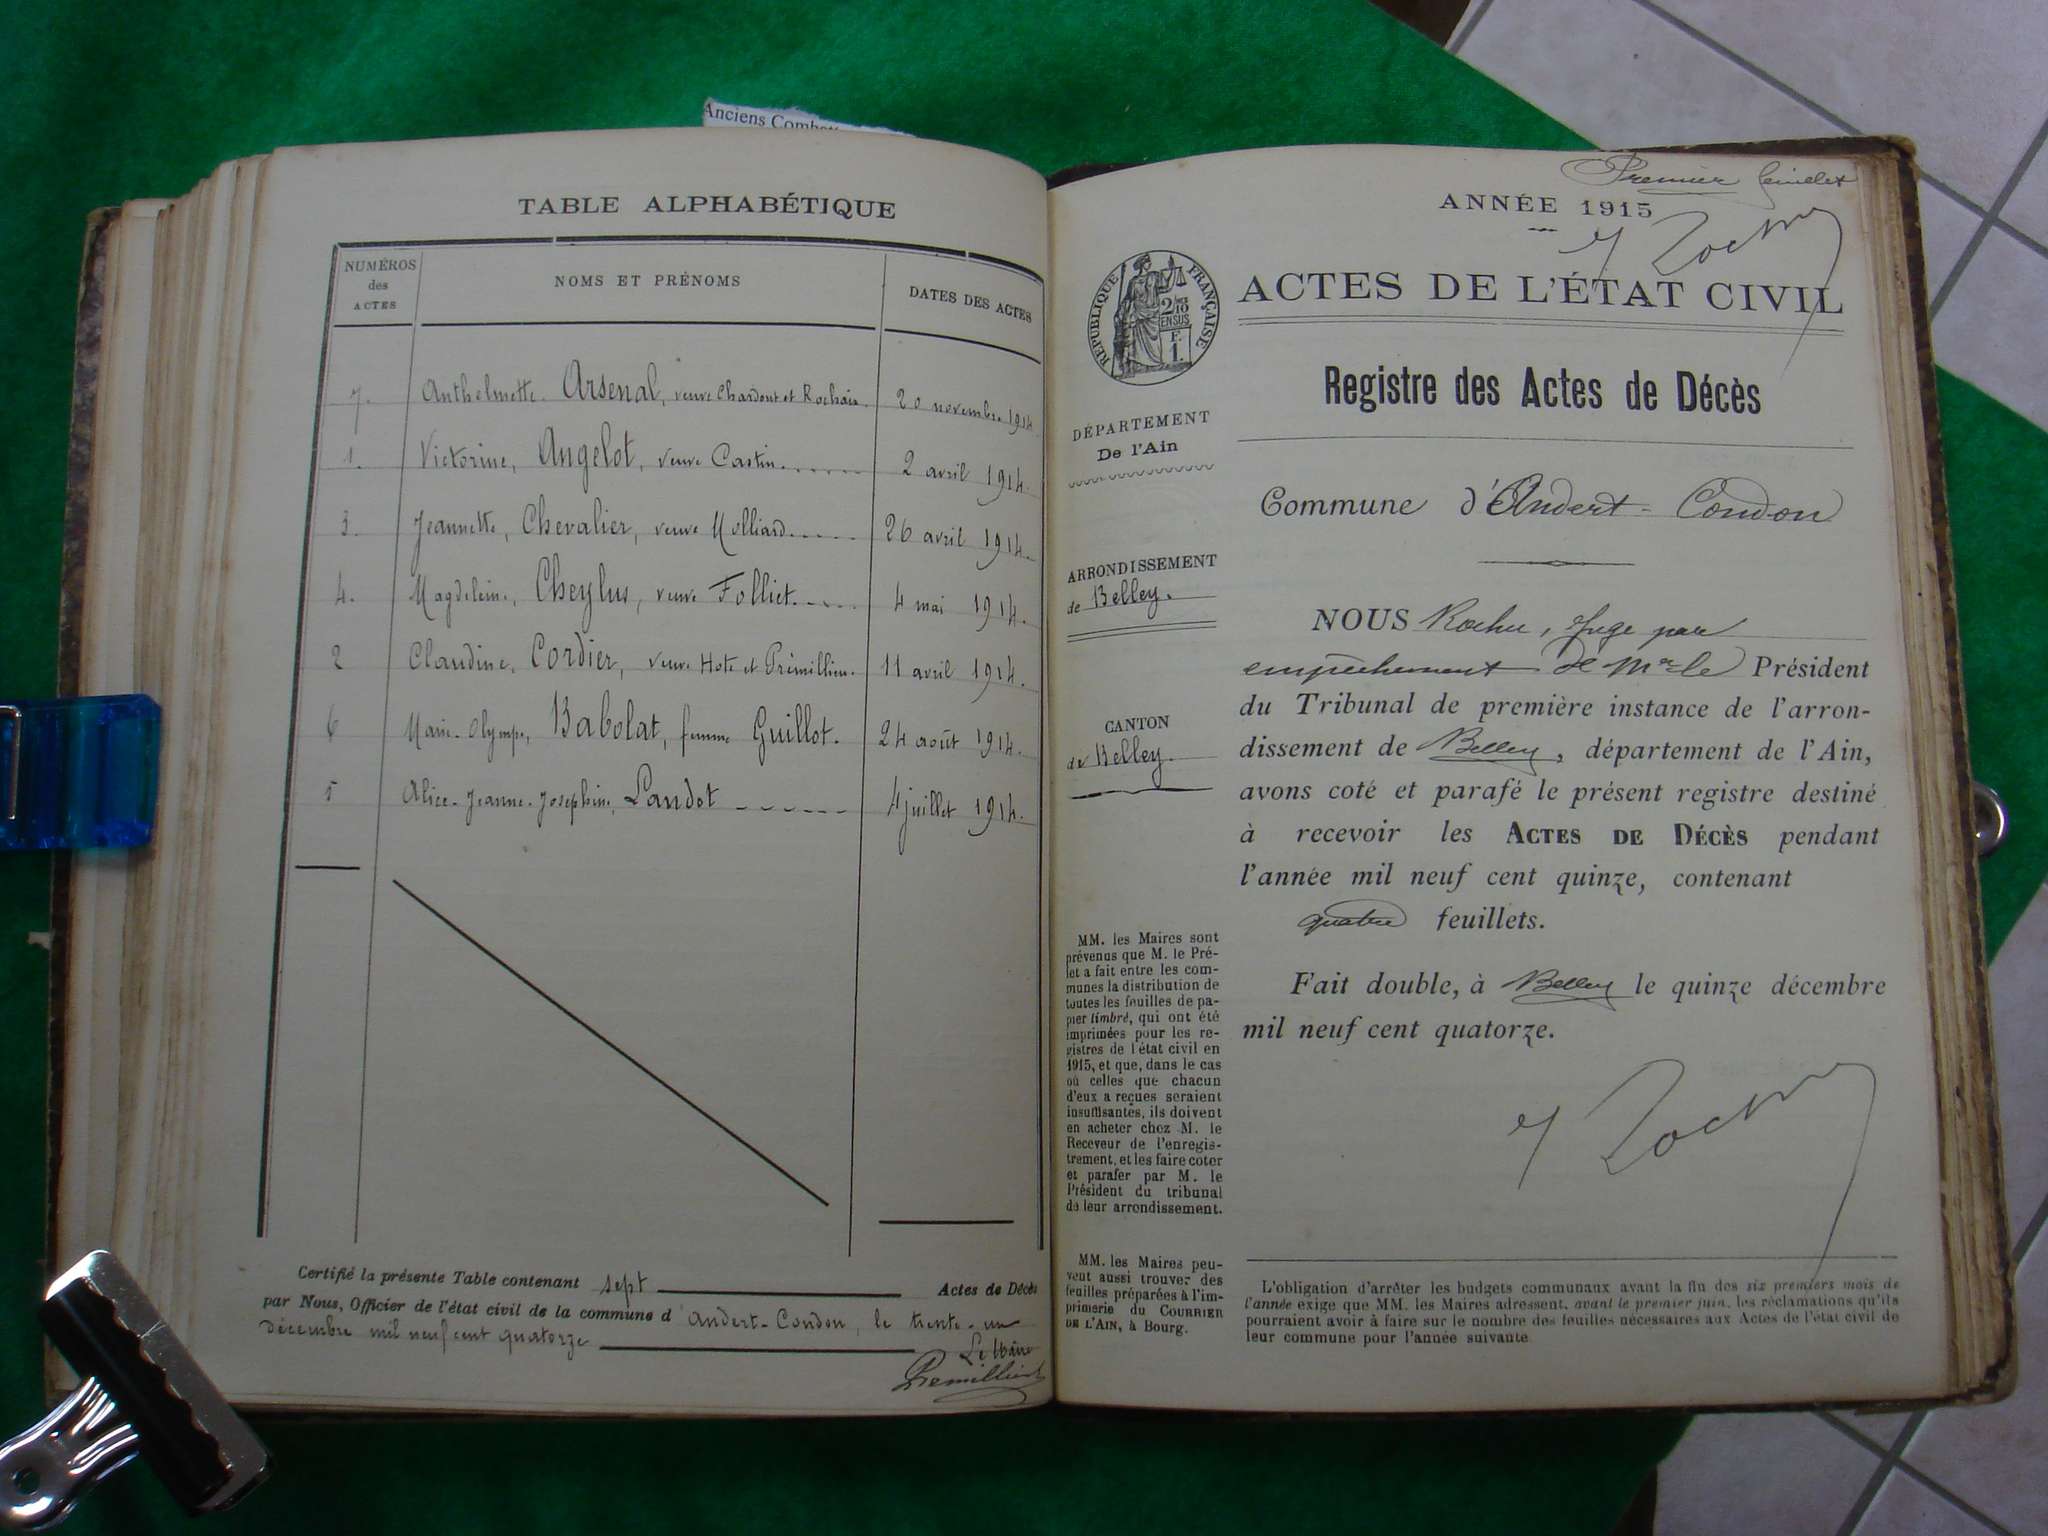 Anciens Comb
TABLE ALPHABÉTIQUE
NUMÉROS
des
ACTES
NOMS ET PRÉNOMS
DATES DES ACTES
7. Anthelmette Arsenal, veuve Chardont et Rochaix. 20 novembre 1914
1. Victorine, Angelot, veuve Castin 2 avril 1914.
3. Jeannette, Chevalier, veuve Molliard 26 avril 1914.
4. Magdeleine, Cheylus, veuve Folliet 4 mai 1914.
2 Claudine, Cordier, veuve Hote et Prémillieu. 11 avril 1914.
6 Marie-Olympe, Babolat, femme Guillot. 24 août 1914.
5 Alice-Jeanne-Joséphine, Landot 4 juillet 1914.
Certifié la présente Table contenant sept Actes de Décès
par Nous, Officier de l'état civil de la commune d'Andert-Condon, le trente-un
décembre mil neuf cent quatorze
Le Maire
Premillieu
Premier feuillet
ANNÉE 1915
RÉPUBLIQUE FRANÇAISE
2/10
EN SUS
F.
1.
ACTES DE L'ÉTAT CIVIL
Registre des Actes de Décès
DÉPARTEMENT
De l'Ain
ARRONDISSEMENT
de Belley.
CANTON
de Belley.
MM. les Maires sont
prévenus que M. le Pré-
fet a fait entre les com-
munes la distribution de
toutes les feuilles de pa-
pier timbré, qui ont été
imprimées pour les re-
gistres de l'état civil en
1915, et que, dans le cas
où celles que chacun
d'eux a reçues seraient
insuffisantes, ils doivent
en acheter chez M. le
Receveur de l'enregis-
trement, et les faire coter
et parafer par M. le
Président du tribunal
de leur arrondissement.
MM. les Maires peu-
vent aussi trouver des
feuilles préparées à l'im-
primerie du COURRIER
DE L'AIN, à Bourg.
Commune d'Andert-Condon
NOUS Rochu, Juge par
empêchement de Mr le Président
du Tribunal de première instance de l'arron-
dissement de Belley, département de l'Ain,
avons coté et parafé le présent registre destiné
à recevoir les ACTES DE DÉCÈS pendant
l'année mil neuf cent quinze, contenant
quatre feuillets.
Fait double, à Belley le quinze décembre
mil neuf cent quatorze.
L'obligation d'arrêter les budgets communaux avant la fin des six premiers mois de
l'année exige que MM. les Maires adressent, avant le premier juin, les réclamations qu'ils
pourraient avoir à faire sur le nombre des feuilles nécessaires aux Actes de l'état civil de
leur commune pour l'année suivante